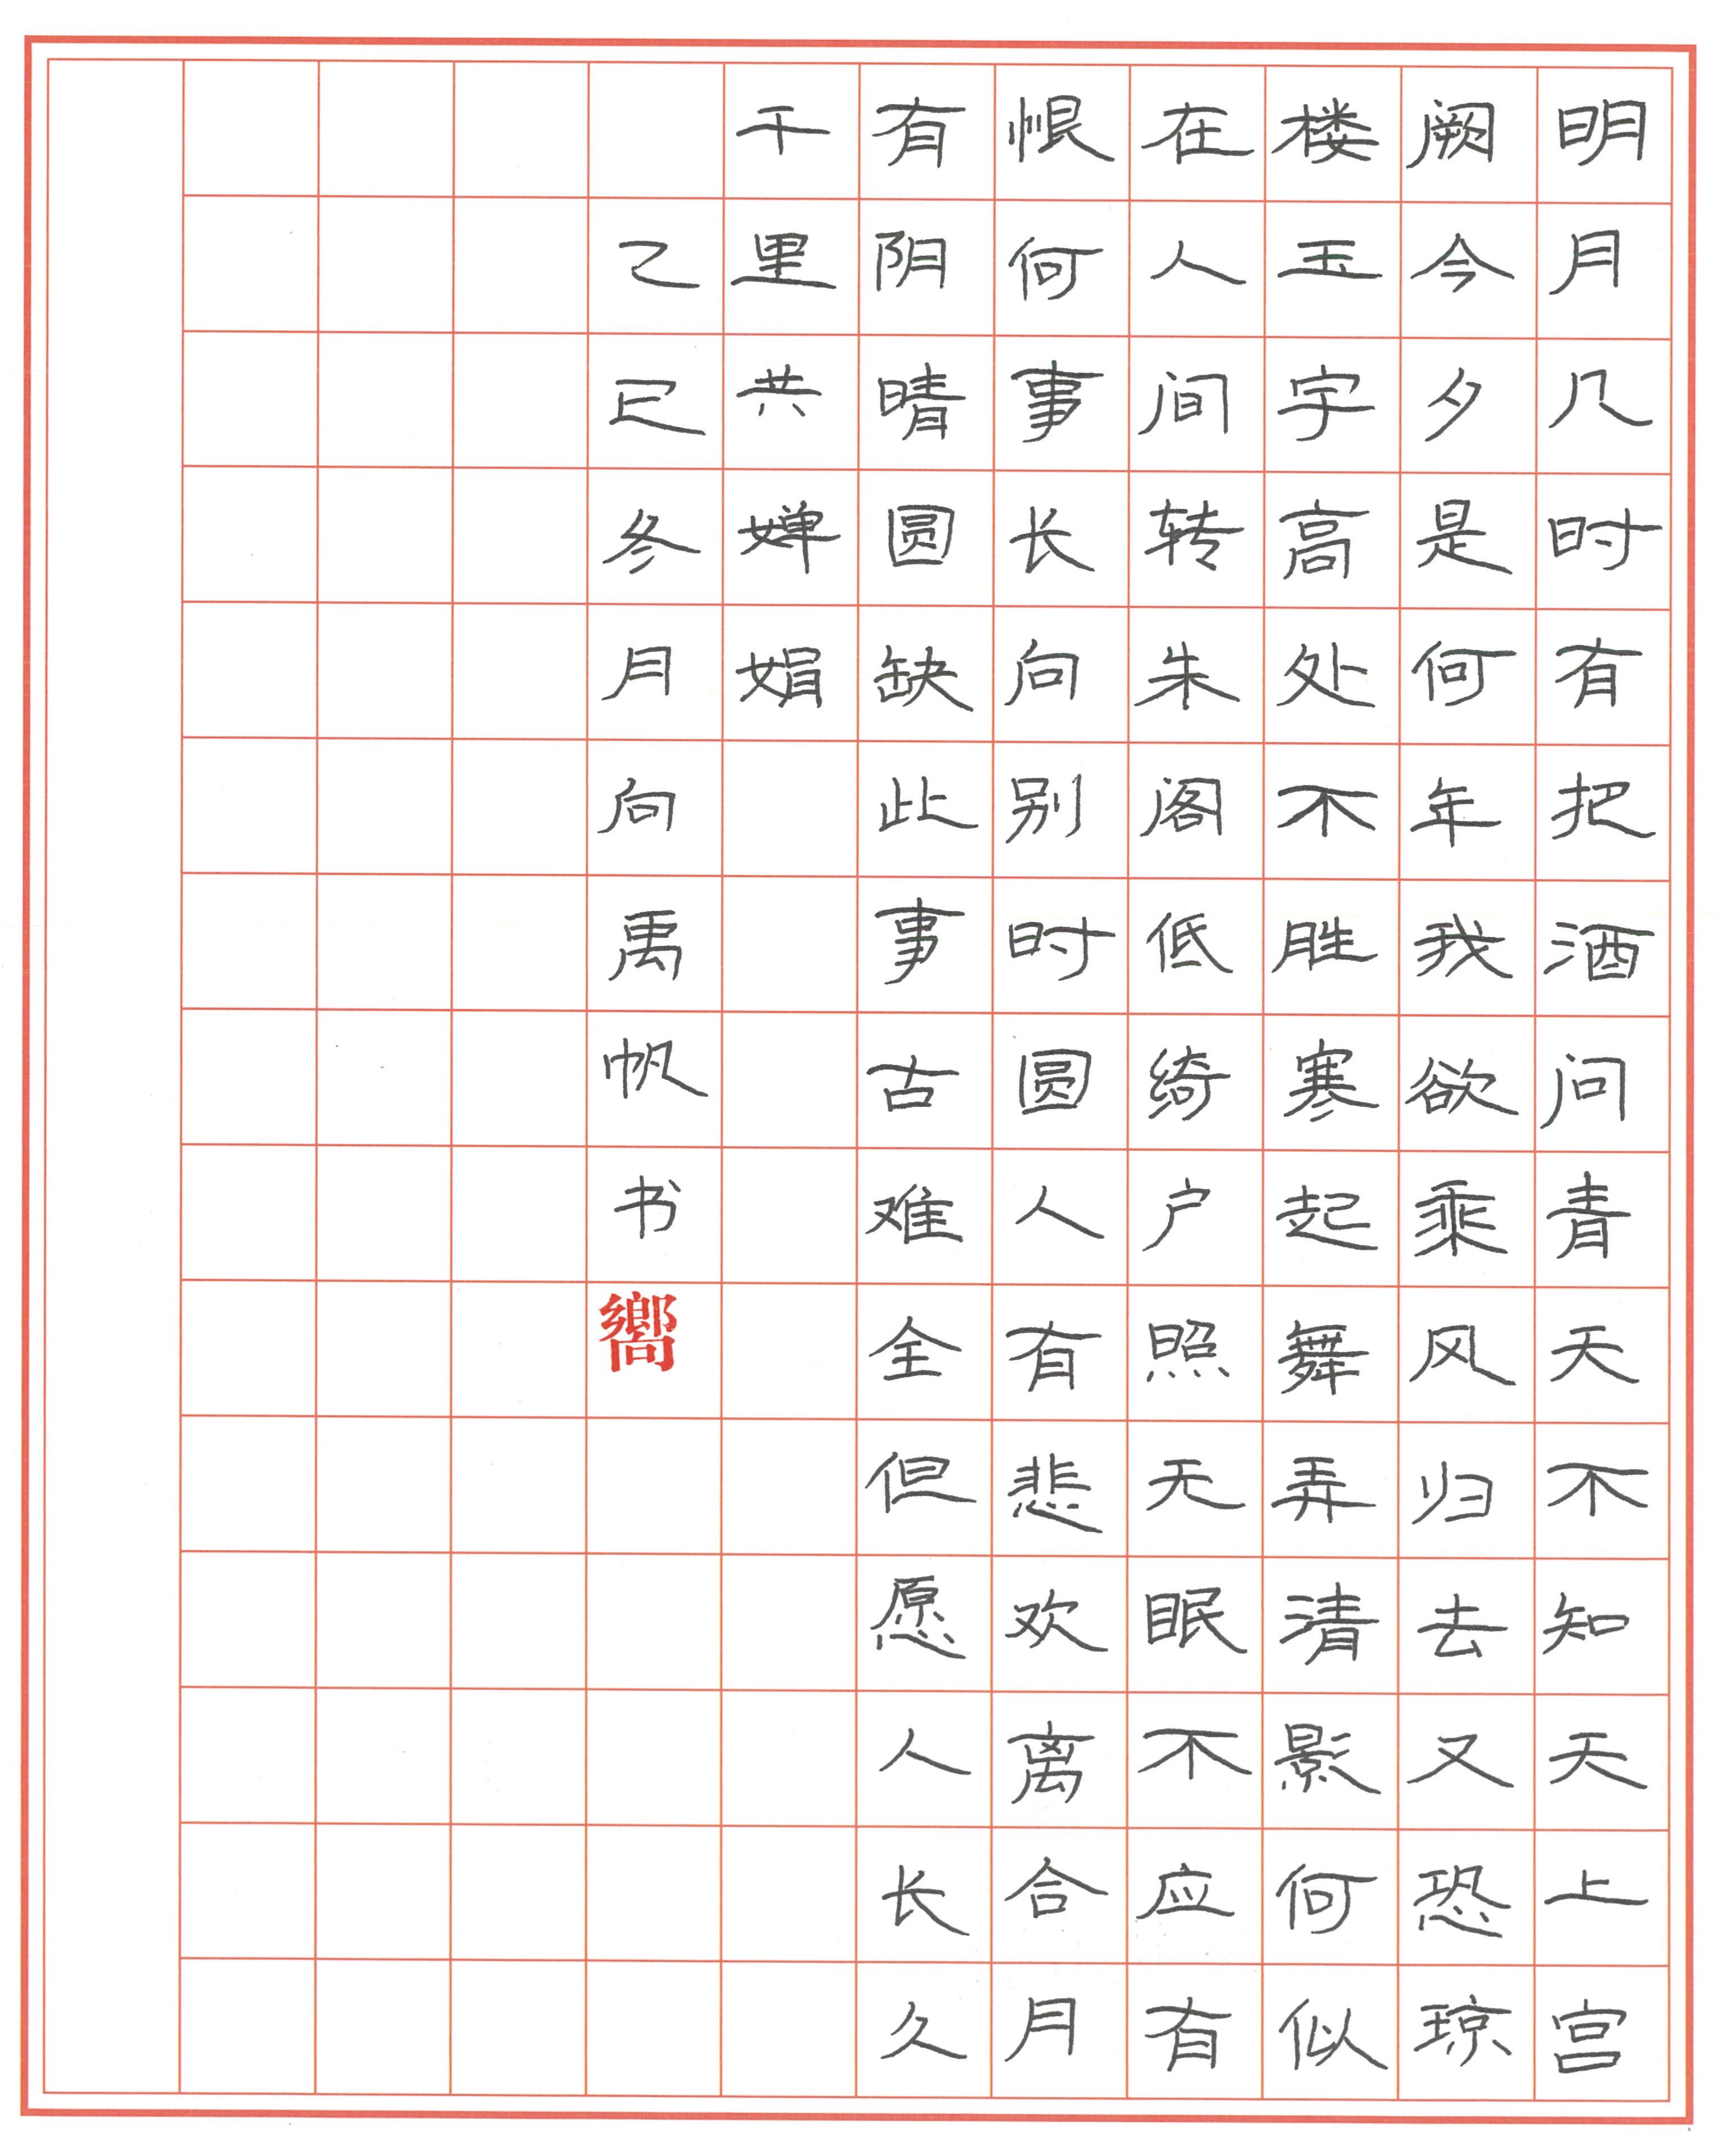 明月几时有把酒问青天不知天上宫
阙今夕是何年我欲乘风归去又恐琼
楼玉宇高处不胜寒起舞弄清影何似
在人间转朱阁低绮户照无眠不应有
恨何事长向别时圆人有悲欢离合月
有阴晴圆缺此事古难全但愿人长久
千里共婵娟
乙巳冬月向禹帆书
嚮